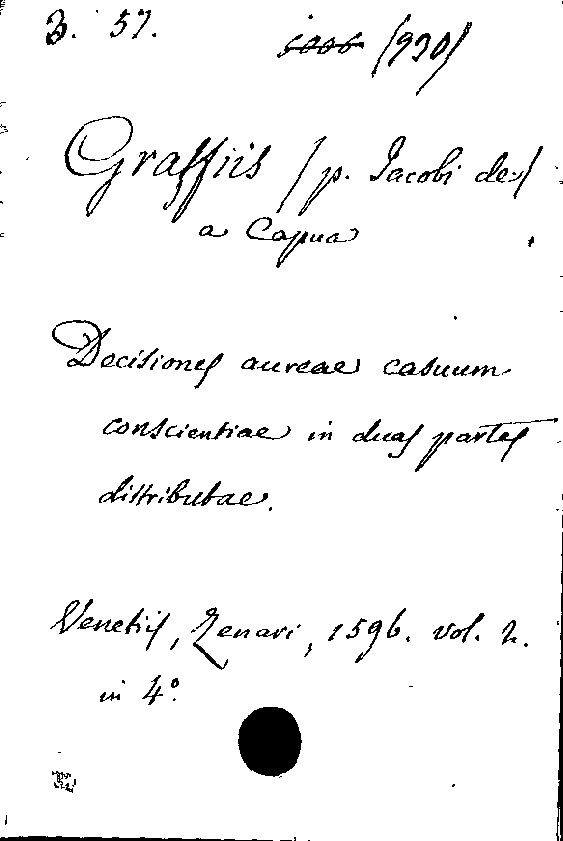 3. 57. 5006 (930)
Graffiis (p. Jacobi de)
a Capua
Decisiones aureae casuum
conscientiae in duas partes
distributae.
Venetiis, Zenari, 1596. vol. 2.
in 4°.